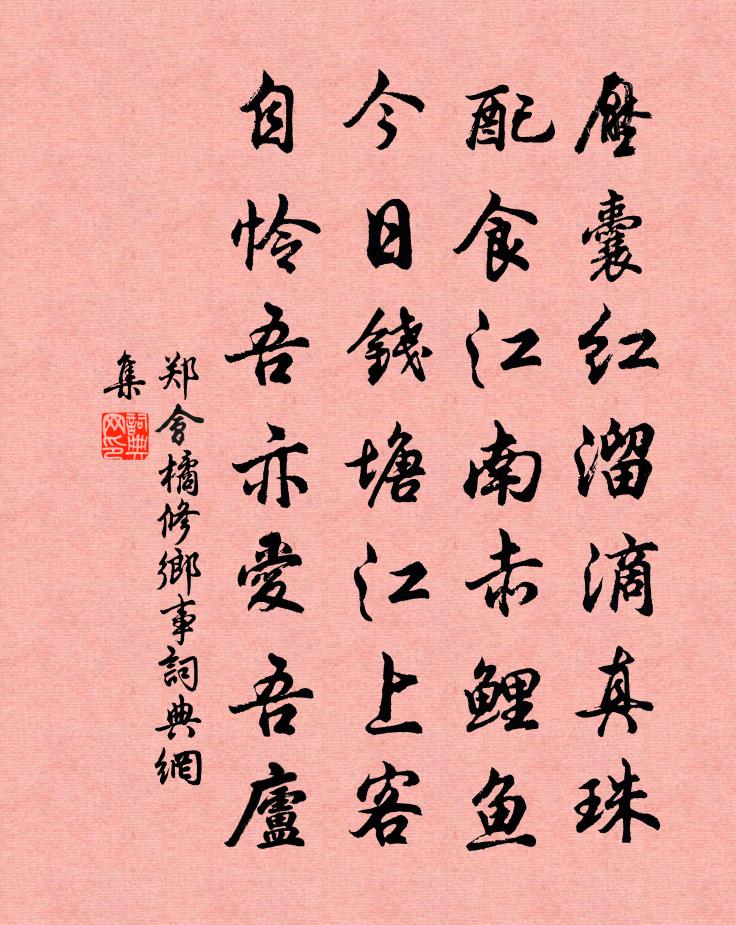 压囊红溜滴真珠
配食江南赤鲤鱼
今日錢塘江上客
自怜吾亦愛吾廬
郑會橘修鄉事詞典網
集
詞典網印